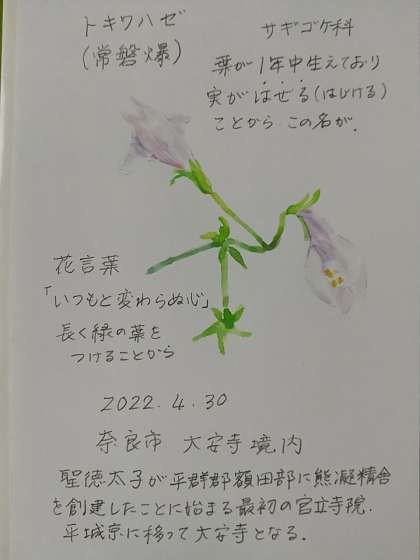 トキワハゼ
(常磐爆)
サギゴケ科
葉が1年中生えており
実がはぜる(はじける)
ことから この名が.
花言葉
「いつもと変わらぬ心」
長く緑の葉を
つけることから
2022.4.30
奈良市 大安寺境内
聖徳太子が平群郡額田部に熊凝精舎
を創建したことに始まる最初の官立寺院.
平城京に移って大安寺となる.